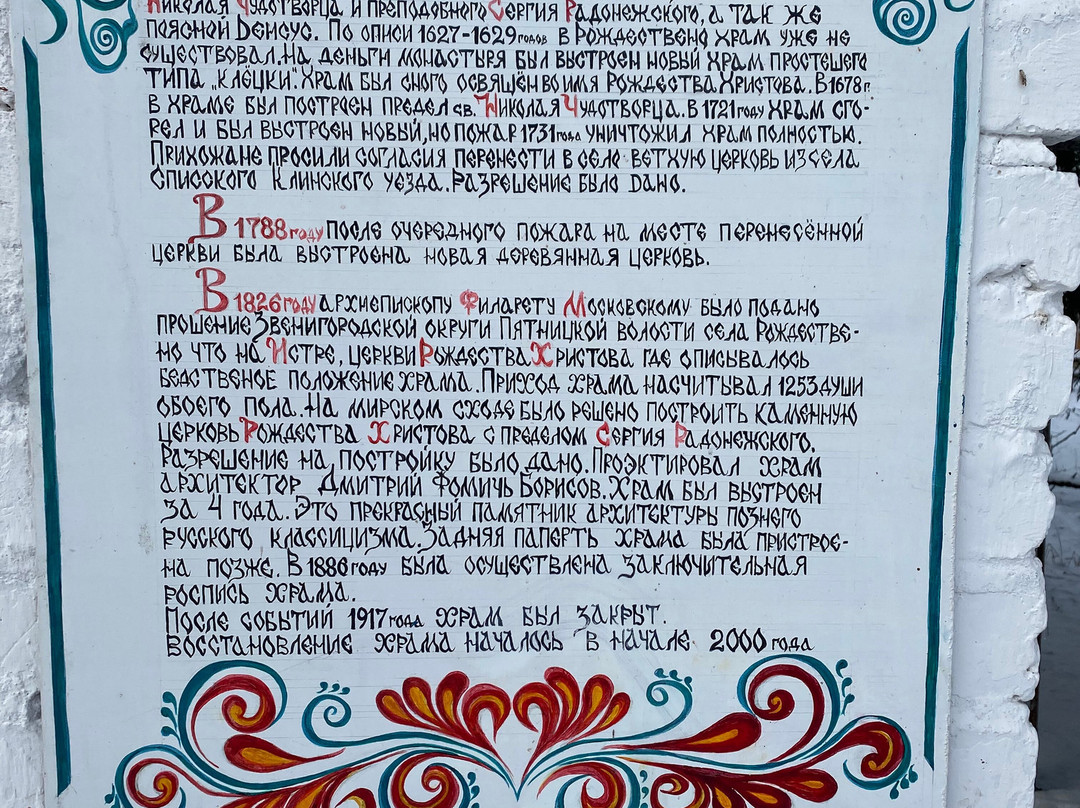 Николая Чудотворца и преподобного Сергия Радонежского, а так же
поясной Деисус. По описи 1627-1629 годов в Рождествено храм уже не
существовал. На деньги монастыря был выстроен новый храм простешего
типа „клецки". Храм был сного освящён во имя Рождества Христова. В 1678 г.
в храме был построен предел св. Николая Чудотворца. В 1721 году храм сго-
рел и был выстроен новый, но пожар 1731 года уничтожил храм полностью.
Прихожане просили согласия перенести в село ветхую церковь из села
Списского Клинского уезда. Разрешение было дано.
В 1788 году после очередного пожара на месте перенесённой
церкви была выстроена новая деревянная церковь.
В 1826 году архиепископу Филарету Московскому было подано
прошение Звенигородской округи Пятницкой волости села Рождестве-
но что на Истре, церкви Рождества Христова где описывалось
бедственое положение храма. Приход храма насчитывал 1253 души
обоего пола. На мирском сходе было решено построить каменную
церковь Рождества Христова с пределом Сергия Радонежского.
Разрешение на постройку было дано. Проэктировал храм
архитектор Дмитрий Фомичь Борисов. Храм был выстроен
за 4 года. Это прекрасный памятник архитектуры позднего
русского классицизма. Задняя паперть храма была пристрое-
на позже. В 1886 году была осуществлена заключительная
роспись храма.
После событий 1917 года храм был закрыт.
Восстановление храма началось в начале 2000 года